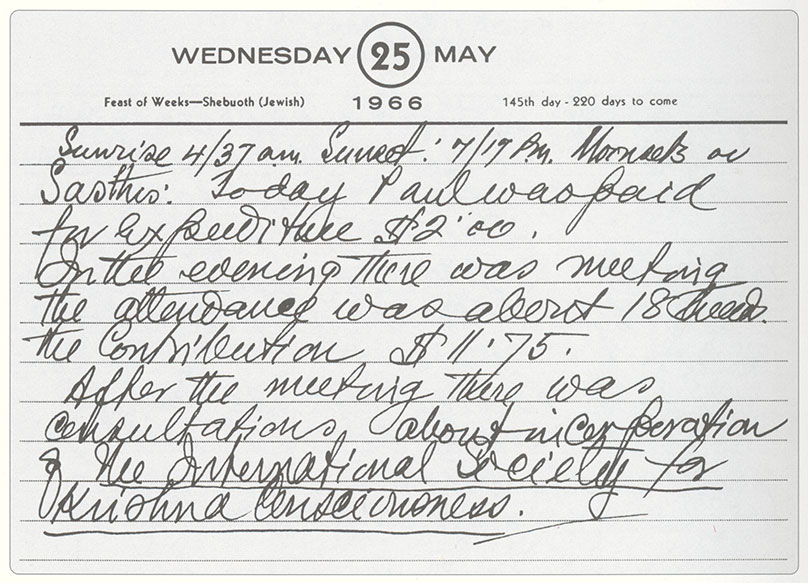 WEDNESDAY 25 MAY
Feast of Weeks—Shebuoth (Jewish) 1966 145th day - 220 days to come
Sunrise 4/37 a.m. Sunset: 7/17 P.M.
Sasthi: Today Paul was paid
for expenditure $2.00.
In the evening there was meeting
the attendance was about 18
the Contribution $11.75.
After the meeting there was
consultations about incorporation
of the International Society for
Krishna Consciousness.